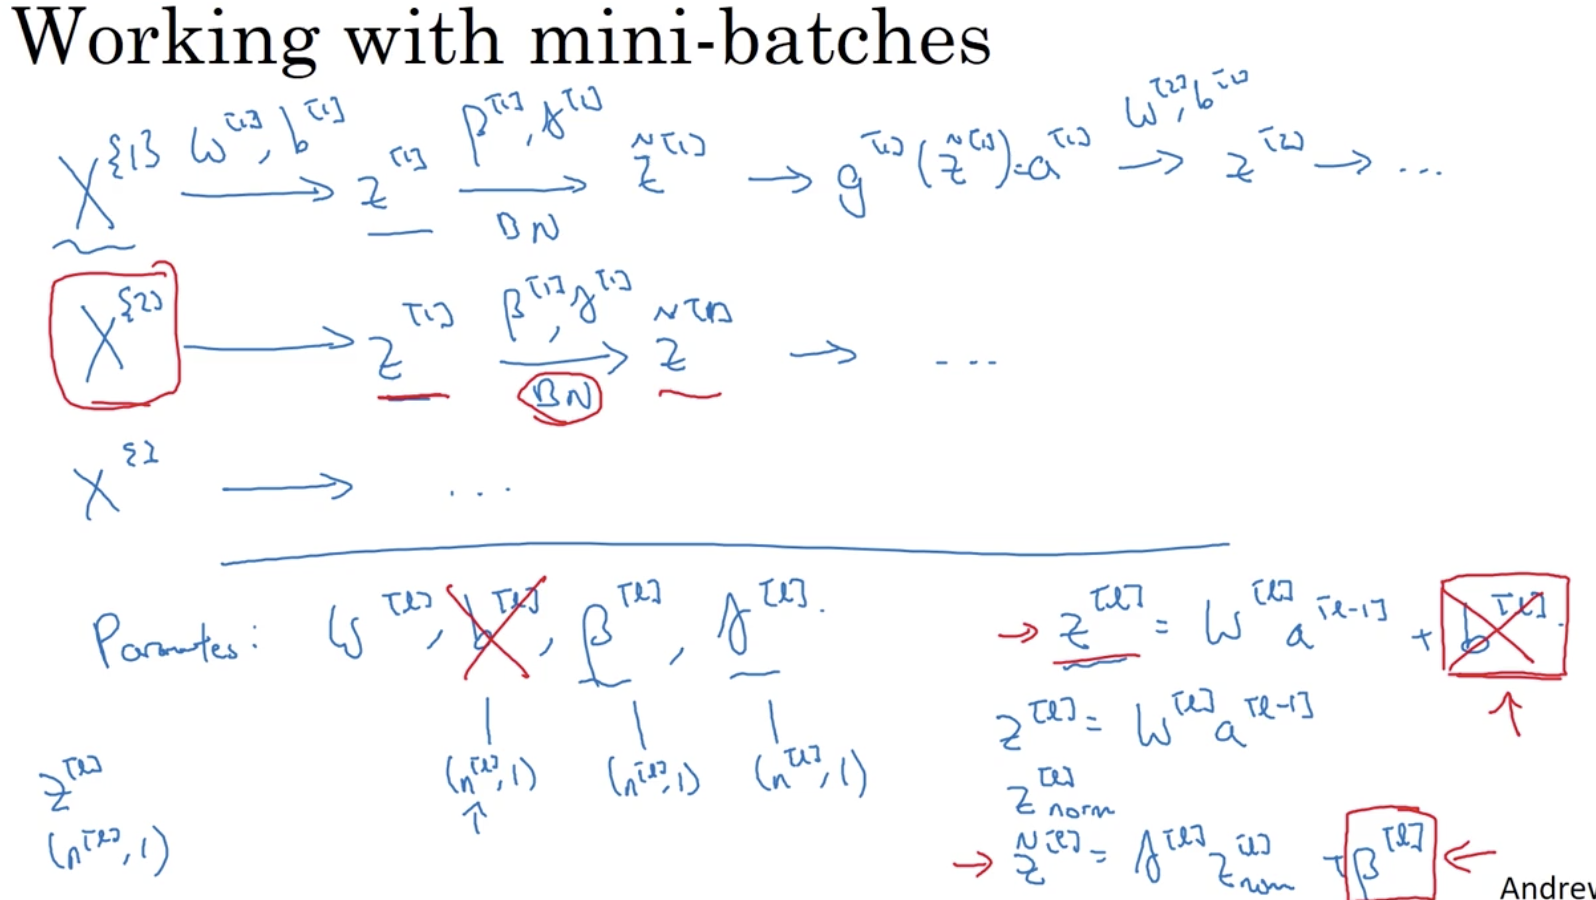 Working with mini-batches
X^{1} →(W^[1], b^[1]) z^[1] →(β^[1], γ^[1] BN) z̃^[1] → g^[1](z̃^[1]) = a^[1] →(W^[2], b^[2]) z^[2] → ...
X^{2} → z^[1] →(β^[1], γ^[1] BN) z̃^[1] → ...
X^{3} → ...
Parameters: W^[l], b^[l], β^[l], γ^[l].
(n^[l], 1) (n^[l], 1) (n^[l], 1)
z^[l]
(n^[l], 1)
→ z^[l] = W^[l] a^[l-1] + b^[l].
z^[l] = W^[l] a^[l-1]
z^[l]_norm
→ z̃^[l] = γ^[l] z^[l]_norm + β^[l] ←
Andrew